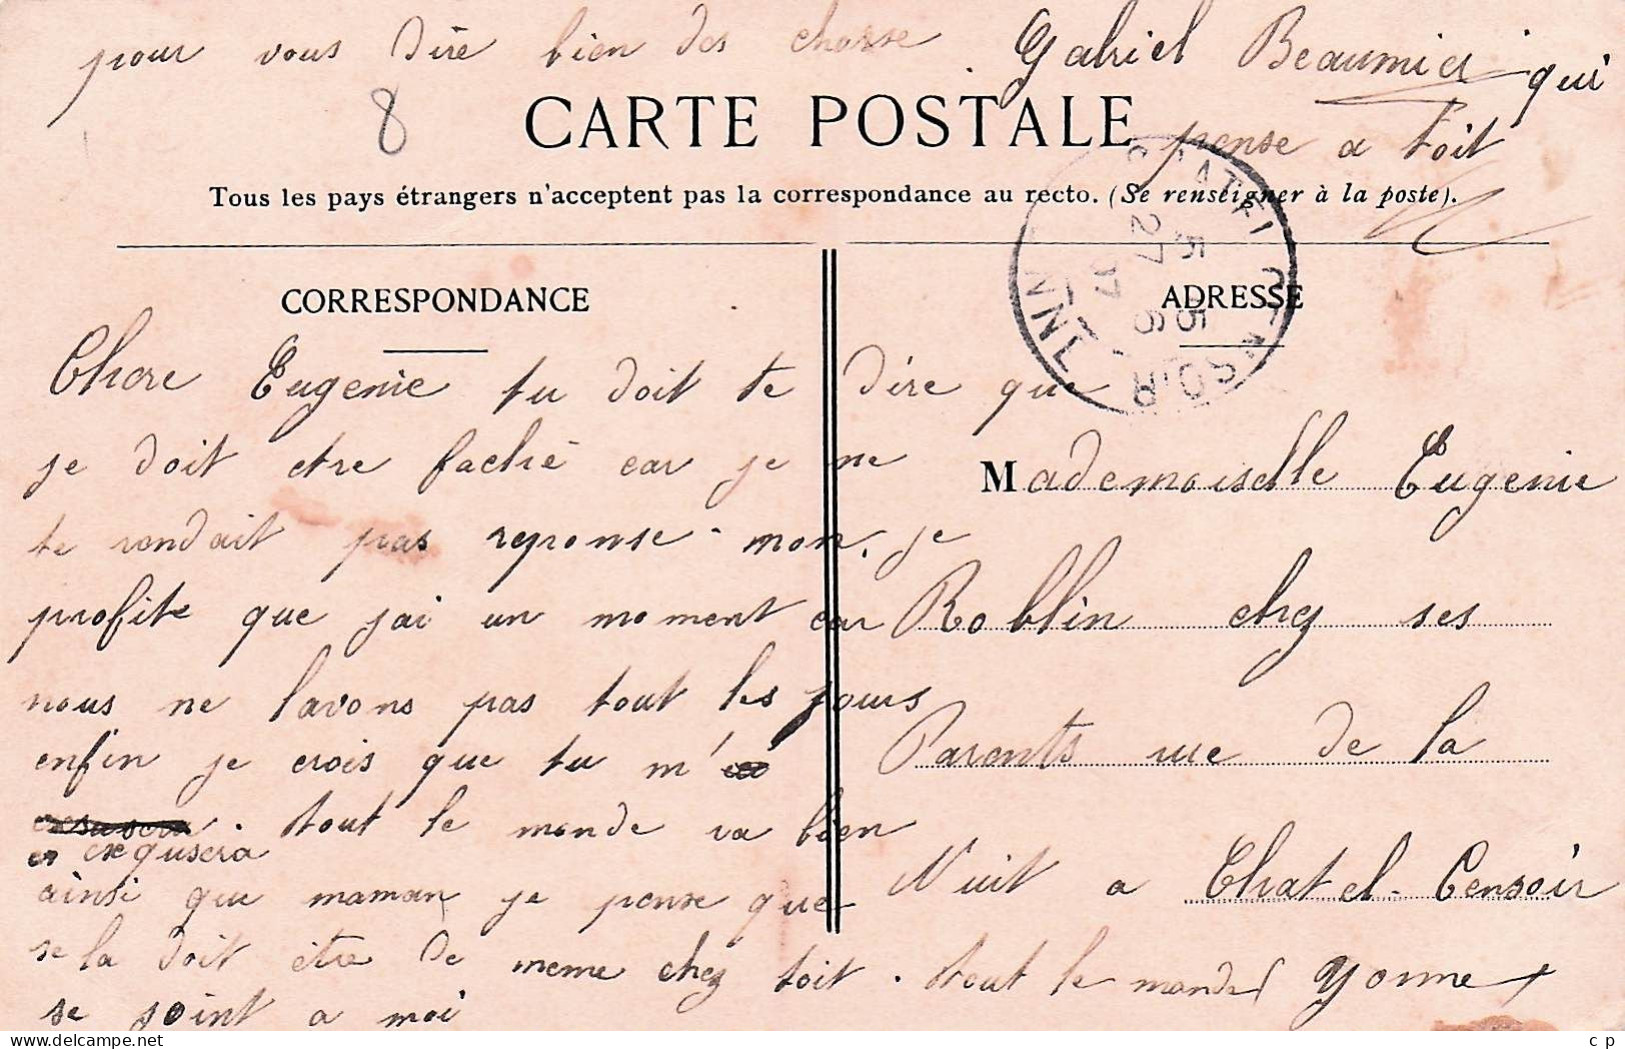 pour vous dire bien des chosse
Gabriel Beaumier qui
pense a toit
8
CARTE POSTALE
Tous les pays étrangers n'acceptent pas la correspondance au recto. (Se renseigner à la poste).
CORRESPONDANCE
Chere Eugenie tu doit te dire que
je doit etre faché car je ne
te rendait pas reponse. mon. je
profite que jai un moment car
nous ne lavons pas tout les jours
enfin je crois que tu m'
exqusera
tout le monde va bien
ainsi que maman je pense que
se la doit être de meme chez toit. tout le monde
se joint a moi
ADRESSE
Mademoiselle Eugenie
Roblin chez ses
Parents rue de la
Nuit a Chatel-Censoir
Yonne
27 6 07
c p